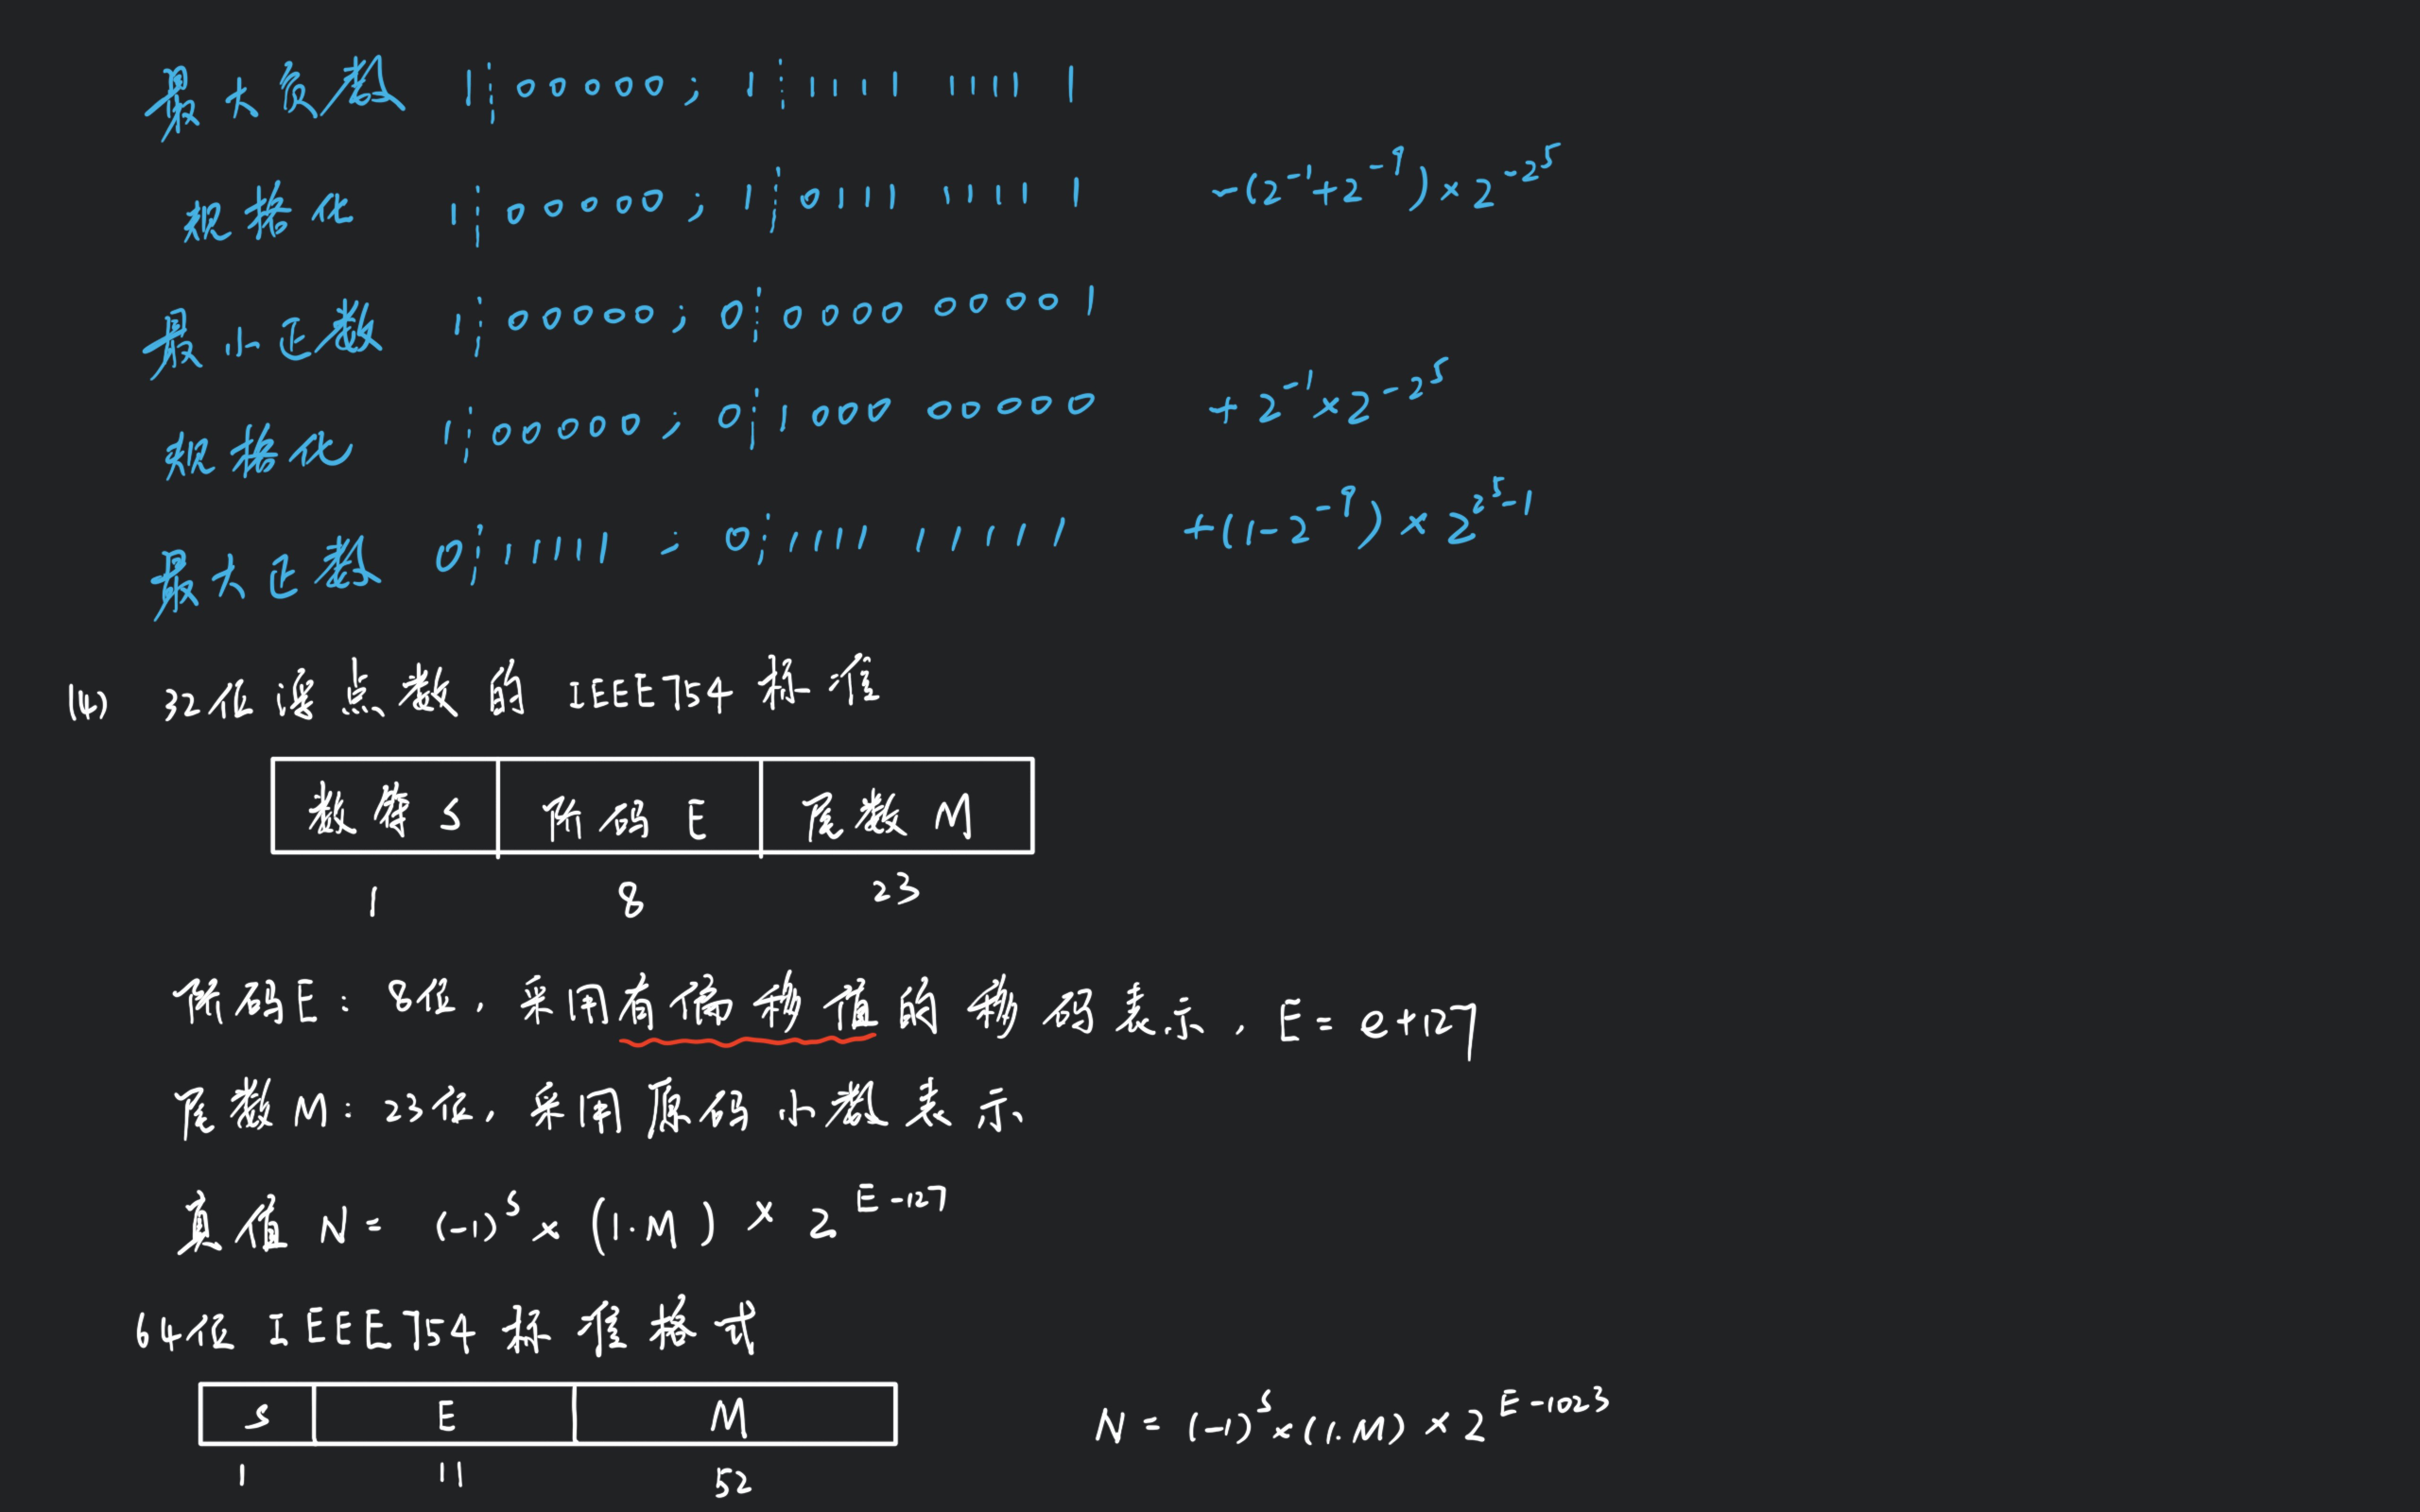 最大负数 1;00000; 1;1111 1111 1
规格化 1;00000; 1;0111 1111 1 -(2⁻¹+2⁻⁹)×2^(-2⁵)
最小正数 1;00000; 0;0000 00001
规格化 1;00000; 0;1000 00000 +2⁻¹×2^(-2⁵)
最大正数 0;11111; 0;1111 11111 +(1-2⁻⁹)×2^(2⁵-1)
(4) 32位浮点数的IEEE754标准
数符S 阶码E 尾数M
1 8 23
阶码E: 8位, 采用有偏移值的移码表示, E=e+127
尾数M: 23位, 采用原码小数表示
真值 N= (-1)^S×(1.M)×2^(E-127)
64位IEEE754标准格式
S E M N=(-1)^S×(1.M)×2^(E-1023)
1 11 52